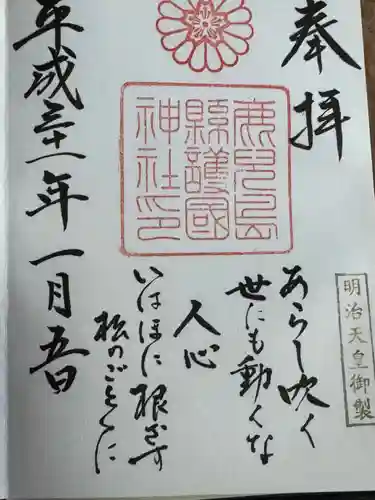 奉拝
鹿児島
縣護國
神社印
明治天皇御製
あらし吹く
世にも動くな
人心
いはほに根ざす
松のごとくに
平成三十一年一月五日